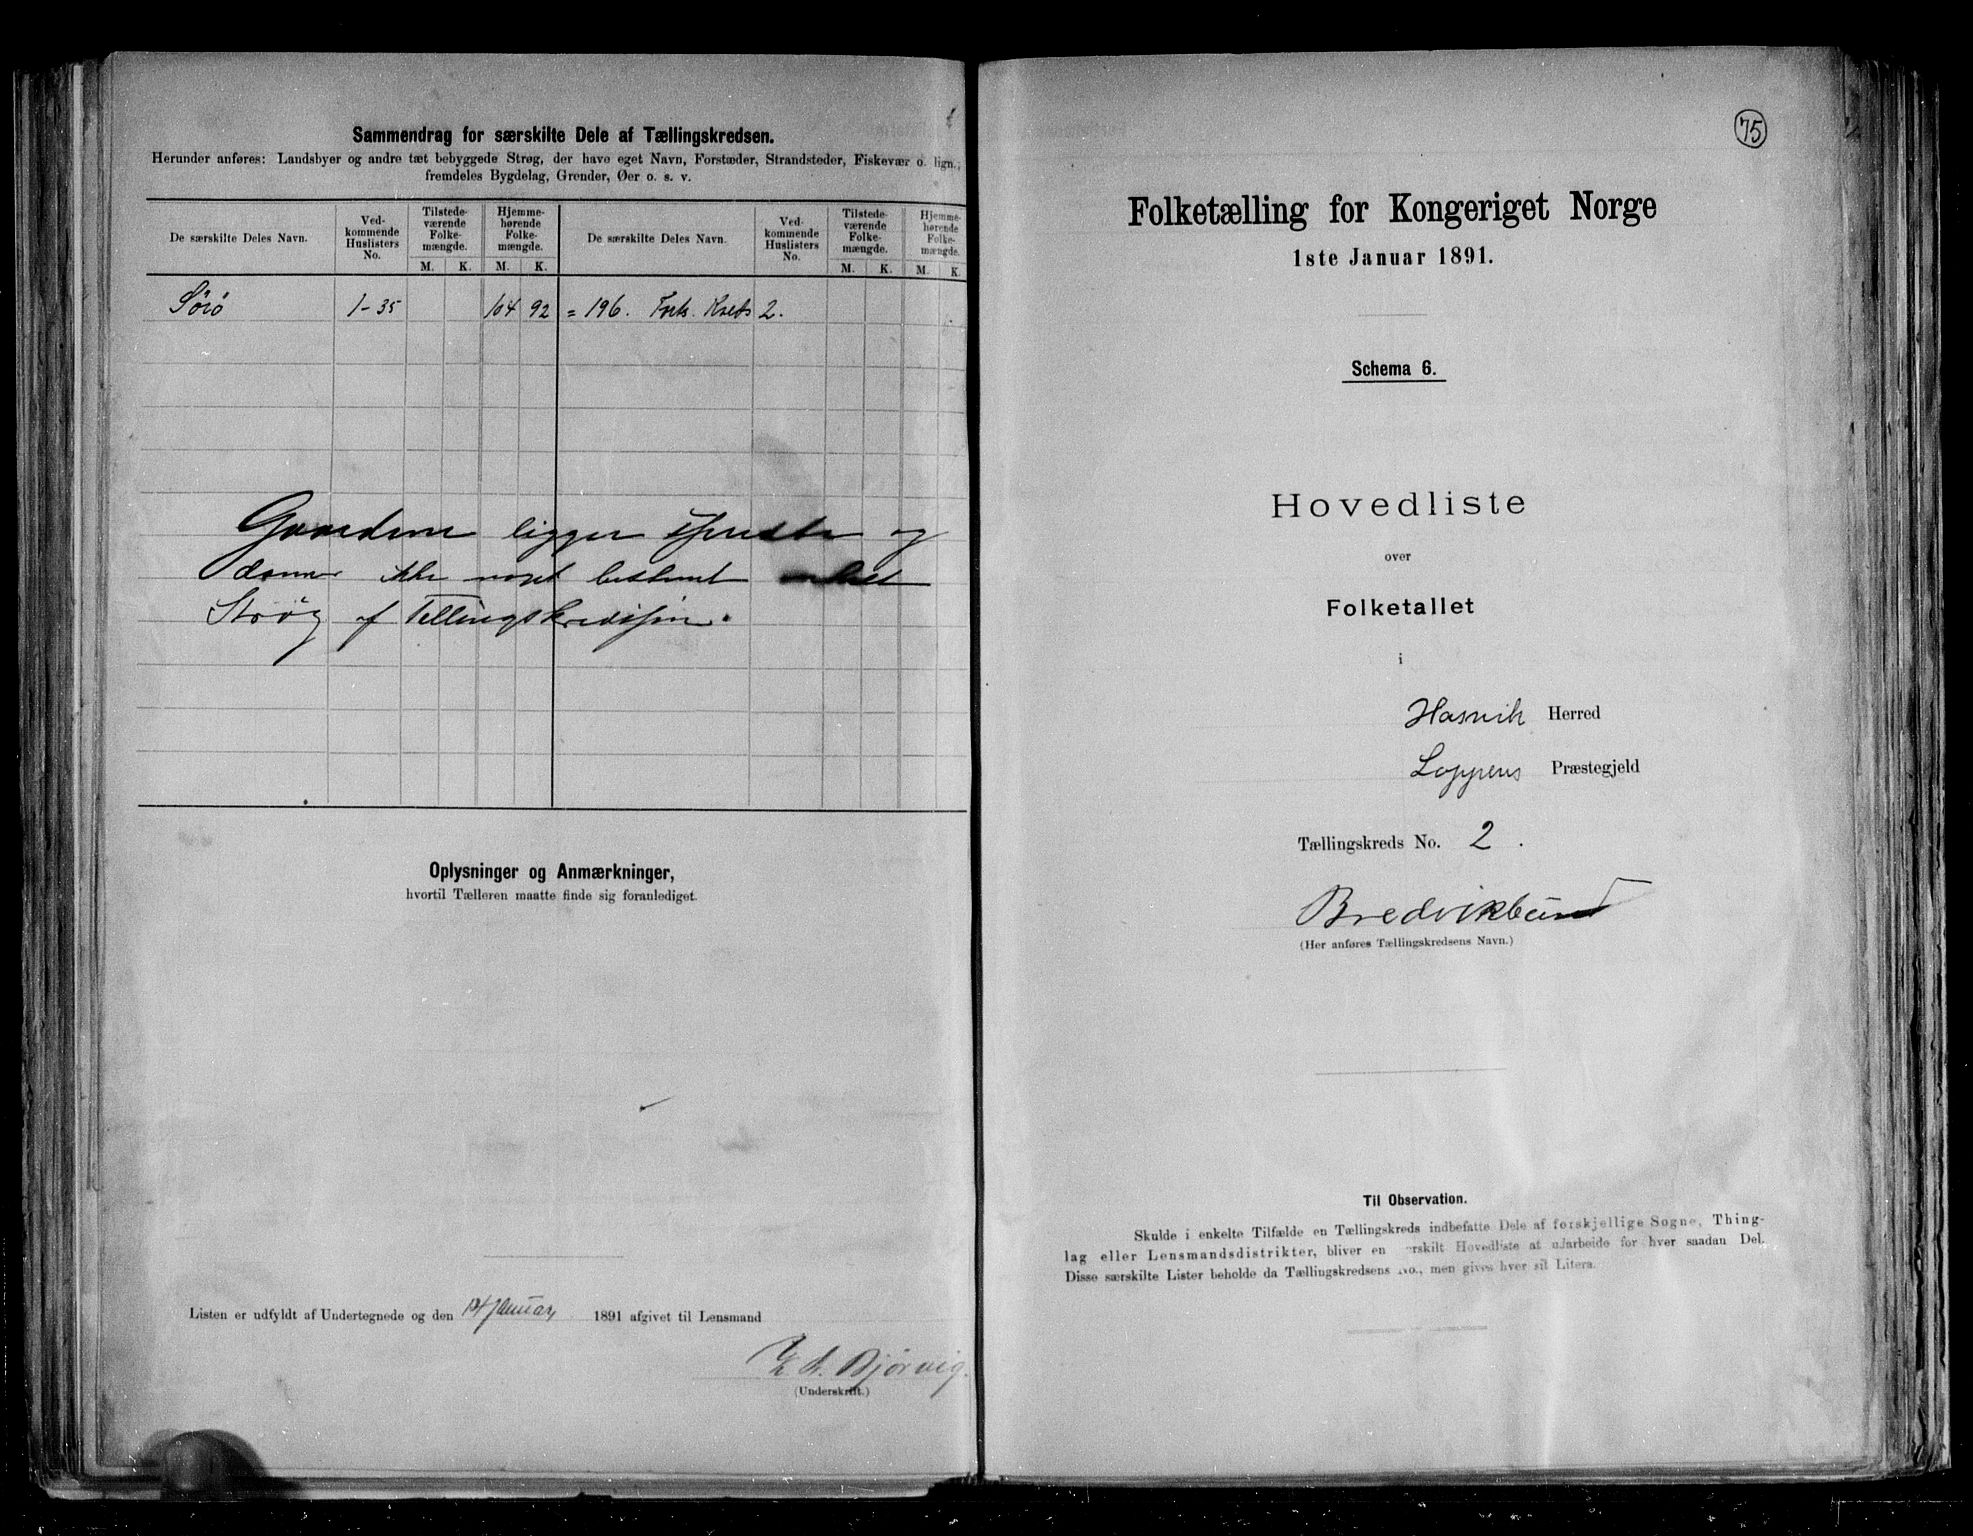 Sammendrag for særskilte Dele af Tællingskredsen.
Herunder anføres: Landsbyer og andre tæt bebyggede Strøg, der have eget Navn, Forstæder, Strandsteder, Fiskevær o. lign.,
fremdeles Bygdelag, Grender, Øer o. s. v.
De særskilte Deles Navn.
Ved-
kommende
Huslisters
No.
Tilstede-
værende
Folke-
mængde.
M. K.
Hjemme-
hørende
Folke-
mængde.
M. K.
De særskilte Deles Navn.
Ved-
kommende
Huslisters
No.
Tilstede-
værende
Folke-
mængde.
M. K.
Hjemme-
hørende
Folke-
mængde.
M. K.
Sörö 1-35 104 92 = 196. Kreds 2.
Gaardene ligger spredte og
danner ikke noget bestemt
Strøg af Tellingskredsen.
Oplysninger og Anmærkninger,
hvortil Tælleren maatte finde sig foranlediget.
Listen er udfyldt af Undertegnede og den 14 Januar 1891 afgivet til Lensmand
Bjørvig.
(Underskrift.)
75
Folketælling for Kongeriget Norge
1ste Januar 1891.
Schema 6.
Hovedliste
over
Folketallet
i
Hasvik Herred
Loppens Præstegjeld
Tællingskreds No. 2.
Bredvikbund
(Her anføres Tællingskredsens Navn.)
Til Observation.
Skulde i enkelte Tilfælde en Tællingskreds indbefatte Dele af forskjellige Sogne, Thing-
lag eller Lensmandsdistrikter, bliver en særskilt Hovedliste at udarbeide for hver saadan Del.
Disse særskilte Lister beholde da Tællingskredsens No., men gives hver sit Litera.